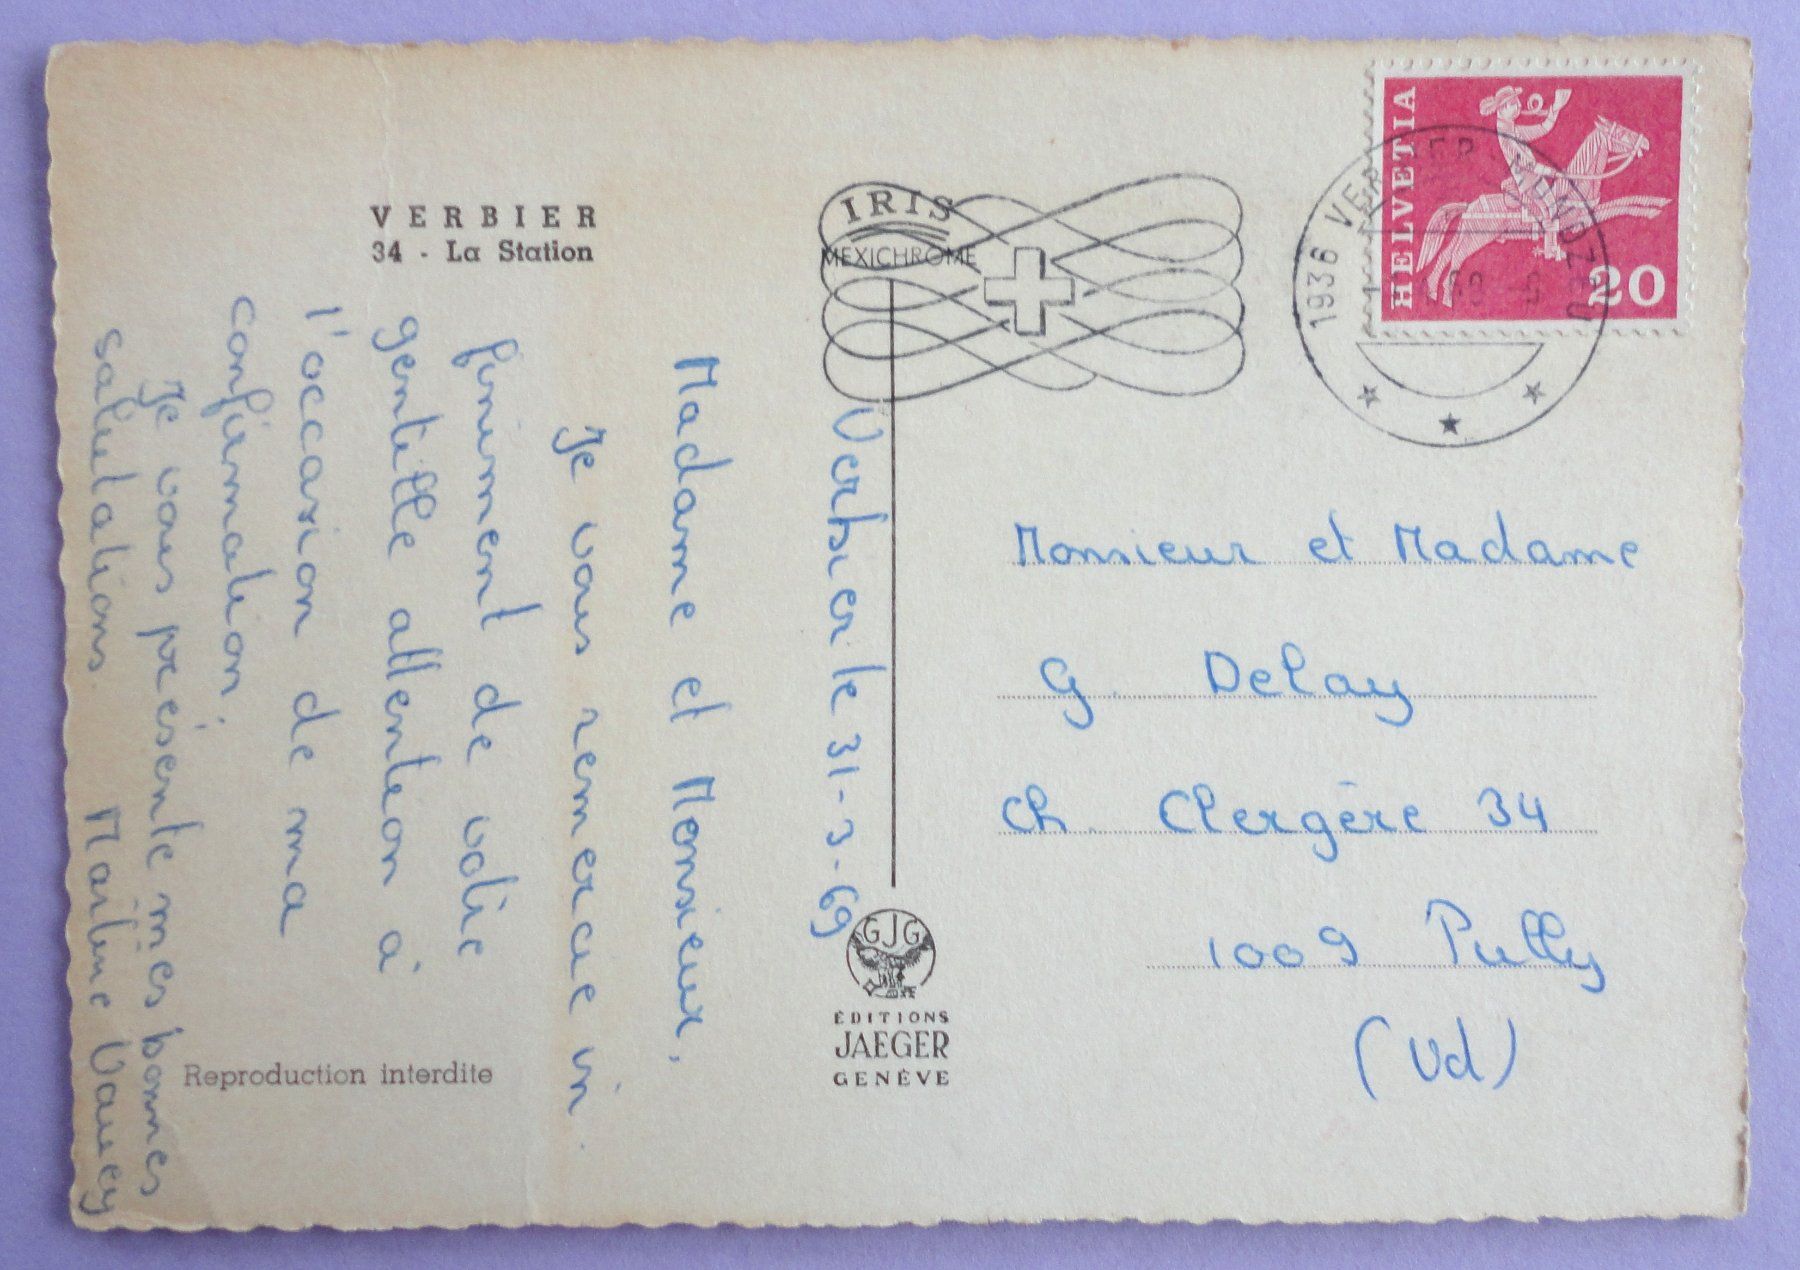 VERBIER
34 - La Station
IRIS
MEXICHROME
HELVETIA
20
1936 VERBIER
Verbier le 31-3-69
Madame et Monsieur,
Je vous remercie in
finiment de votre
gentille attention à
l'occasion de ma
confirmation.
Je vous présente mes bonnes
salutations. Martine
Monsieur et Madame
G. Delay
Ch. Clergère 34
1009 Pully
(Vd)
GJG
ÉDITIONS
JAEGER
GENÈVE
Reproduction interdite